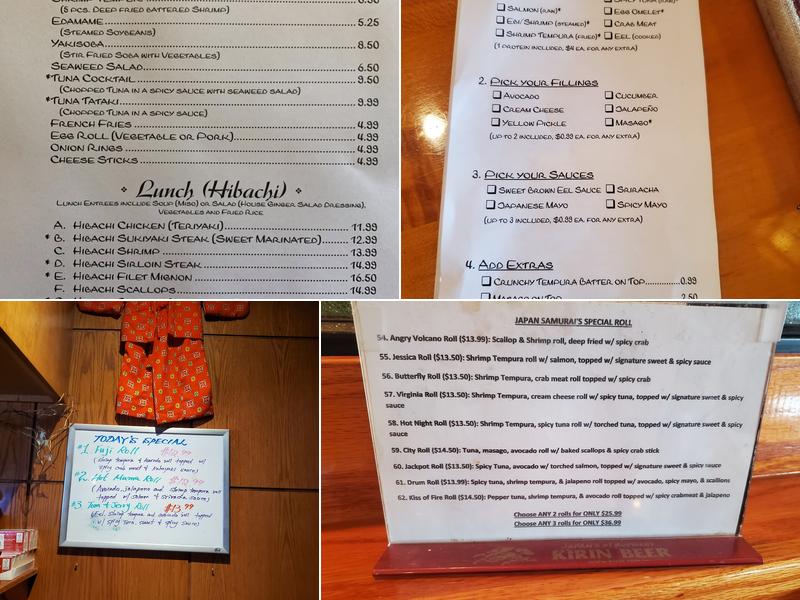 (5 pcs. Deep fried battered Shrimp)
Edamame 5.25
(Steamed Soybeans)
Yakisoba 8.50
(Stir Fried Soba with Vegetables)
Seaweed Salad 6.50
*Tuna Cocktail 9.50
(Chopped Tuna in a spicy sauce with seaweed salad)
*Tuna Tataki 9.99
(Chopped Tuna in a spicy sauce)
French Fries 4.99
Egg Roll (Vegetable or Pork) 4.99
Onion Rings 4.99
Cheese Sticks 4.99
Lunch (Hibachi)
Lunch Entrees include Soup (Miso) or Salad (House Ginger Salad Dressing),
Vegetables and Fried Rice
A. Hibachi Chicken (Teriyaki) 11.99
* B. Hibachi Sukiyaki Steak (Sweet Marinated) 12.99
C. Hibachi Shrimp 13.99
* D. Hibachi Sirloin Steak 14.99
* E. Hibachi Filet Mignon 16.50
F. Hibachi Scallops 14.99
Salmon (raw)* Egg Omelet*
Ebi/Shrimp (steamed)* Crab Meat
Shrimp Tempura (fried)* Eel (cooked)
(1 protein included, $4 ea. for any extra)
2. Pick your Fillings
Avocado Cucumber
Cream Cheese Jalapeño
Yellow Pickle Masago*
(up to 2 included, $0.99 ea. for any extra)
3. Pick your Sauces
Sweet Brown Eel Sauce Sriracha
Japanese Mayo Spicy Mayo
(up to 3 included, $0.99 ea. for any extra)
4. Add Extras
Crunchy Tempura Batter on Top 0.99
Masago on Top 2.50
TODAY'S SPECIAL
#1. Fuji Roll
(Shrimp tempura & Avocado roll topped w/
spicy crab meat &
#2 Hot Mama Roll
(Avocado, Jalapeno and shrimp tempura roll
topped w/ and sriracha sauce)
#3 Tom & Jerry Roll $13.99
shrimp tempura and avocado roll topped
w/ spicy tuna, sweet & spicy sauce)
JAPAN SAMURAI'S SPECIAL ROLL
54. Angry Volcano Roll ($13.99): Scallop & Shrimp roll, deep fried w/ spicy crab
55. Jessica Roll ($13.50): Shrimp Tempura roll w/ salmon, topped w/ signature sweet & spicy sauce
56. Butterfly Roll ($13.50): Shrimp Tempura, crab meat roll topped w/ spicy crab
57. Virginia Roll ($13.50): Shrimp Tempura, cream cheese roll w/ spicy tuna, topped w/ signature sweet & spicy
sauce
58. Hot Night Roll ($13.50): Shrimp Tempura, spicy tuna roll w/ torched tuna, topped w/ signature sweet & spicy
sauce
59. City Roll ($14.50): Tuna, masago, avocado roll w/ baked scallops & spicy crab stick
60. Jackpot Roll ($13.50): Spicy Tuna, avocado w/ torched salmon, topped w/ signature sweet & spicy sauce
61. Drum Roll ($13.99): Spicy tuna, shrimp tempura, & jalapeno roll topped w/ avocado, spicy mayo, & scallions
62. Kiss of Fire Roll ($14.50): Pepper tuna, shrimp tempura, & avocado roll topped w/ spicy crabmeat & jalapeno
Choose ANY 2 rolls for ONLY $25.99
Choose ANY 3 rolls for ONLY $36.99
KIRIN BEER